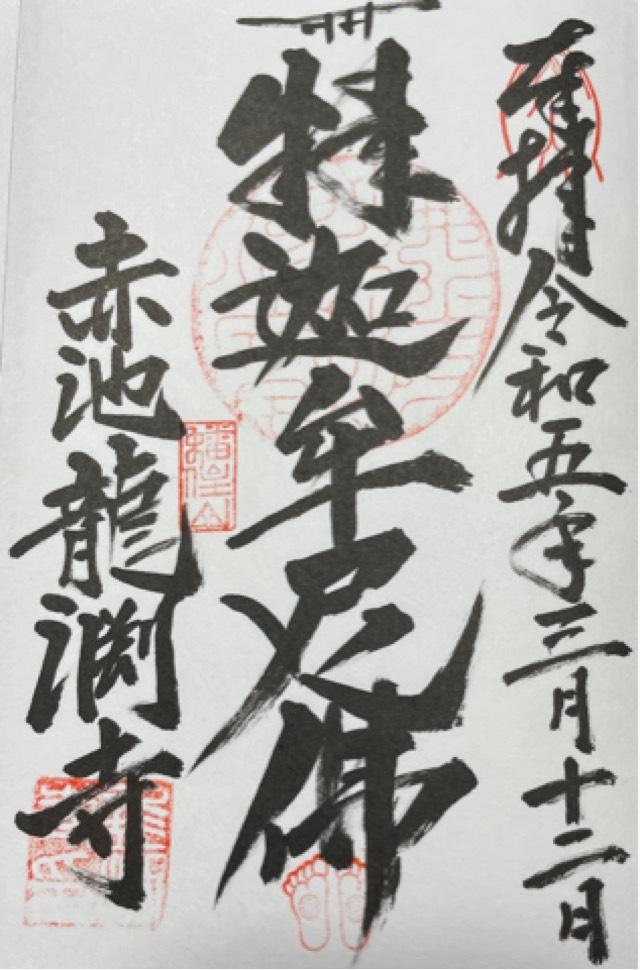 奉拝 令和五年三月十二日
南無
釈迦牟尼佛
赤池龍渕寺